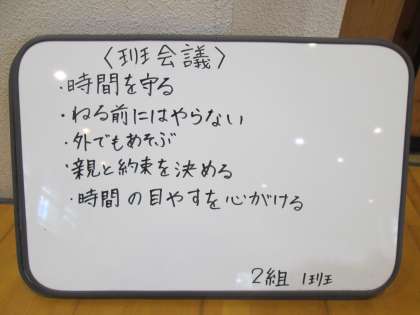 〈班会議〉
・時間を守る
・ねる前にはやらない
・外でもあそぶ
・親と約束を決める
・時間の目やすを心がける
2組 1班